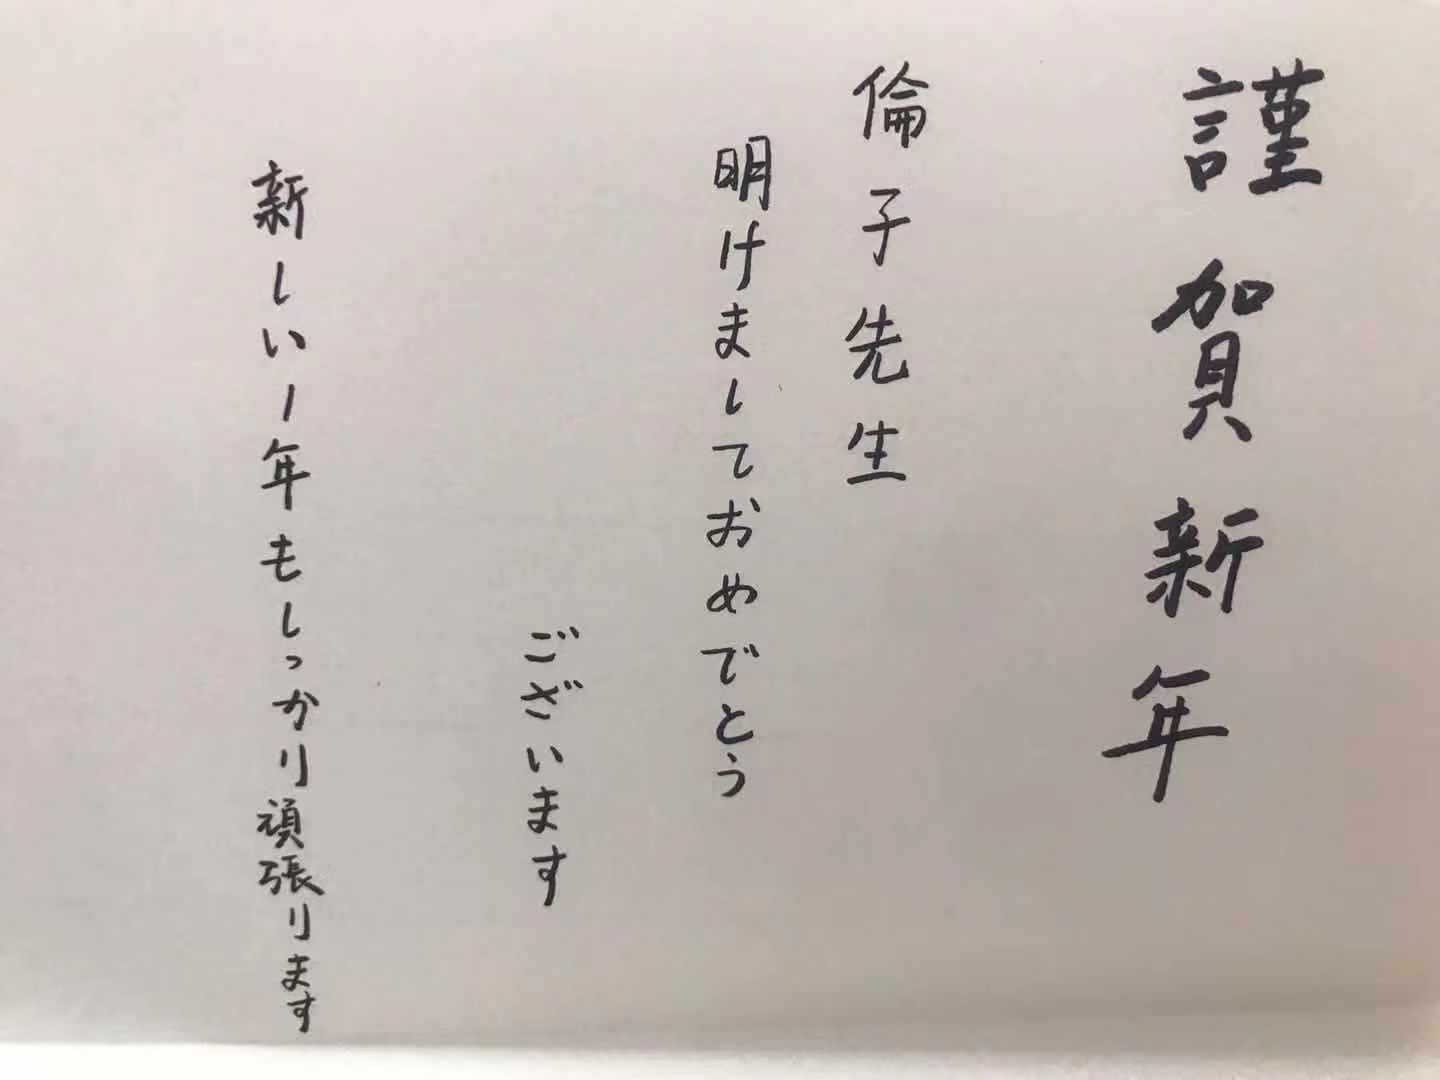 謹賀新年
倫子先生
明けましておめでとう
ございます
新しい1年もしっかり頑張ります